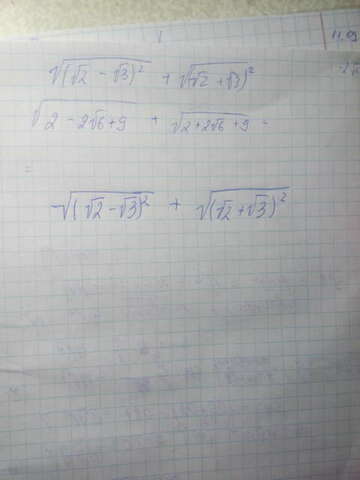 11.09
√(√2 - √3)² + √(√2 + √3)²
√2 - 2√6 + 9 + √2 + 2√6 + 9 -
=
-√(√2 - √3)² + √(√2 + √3)²